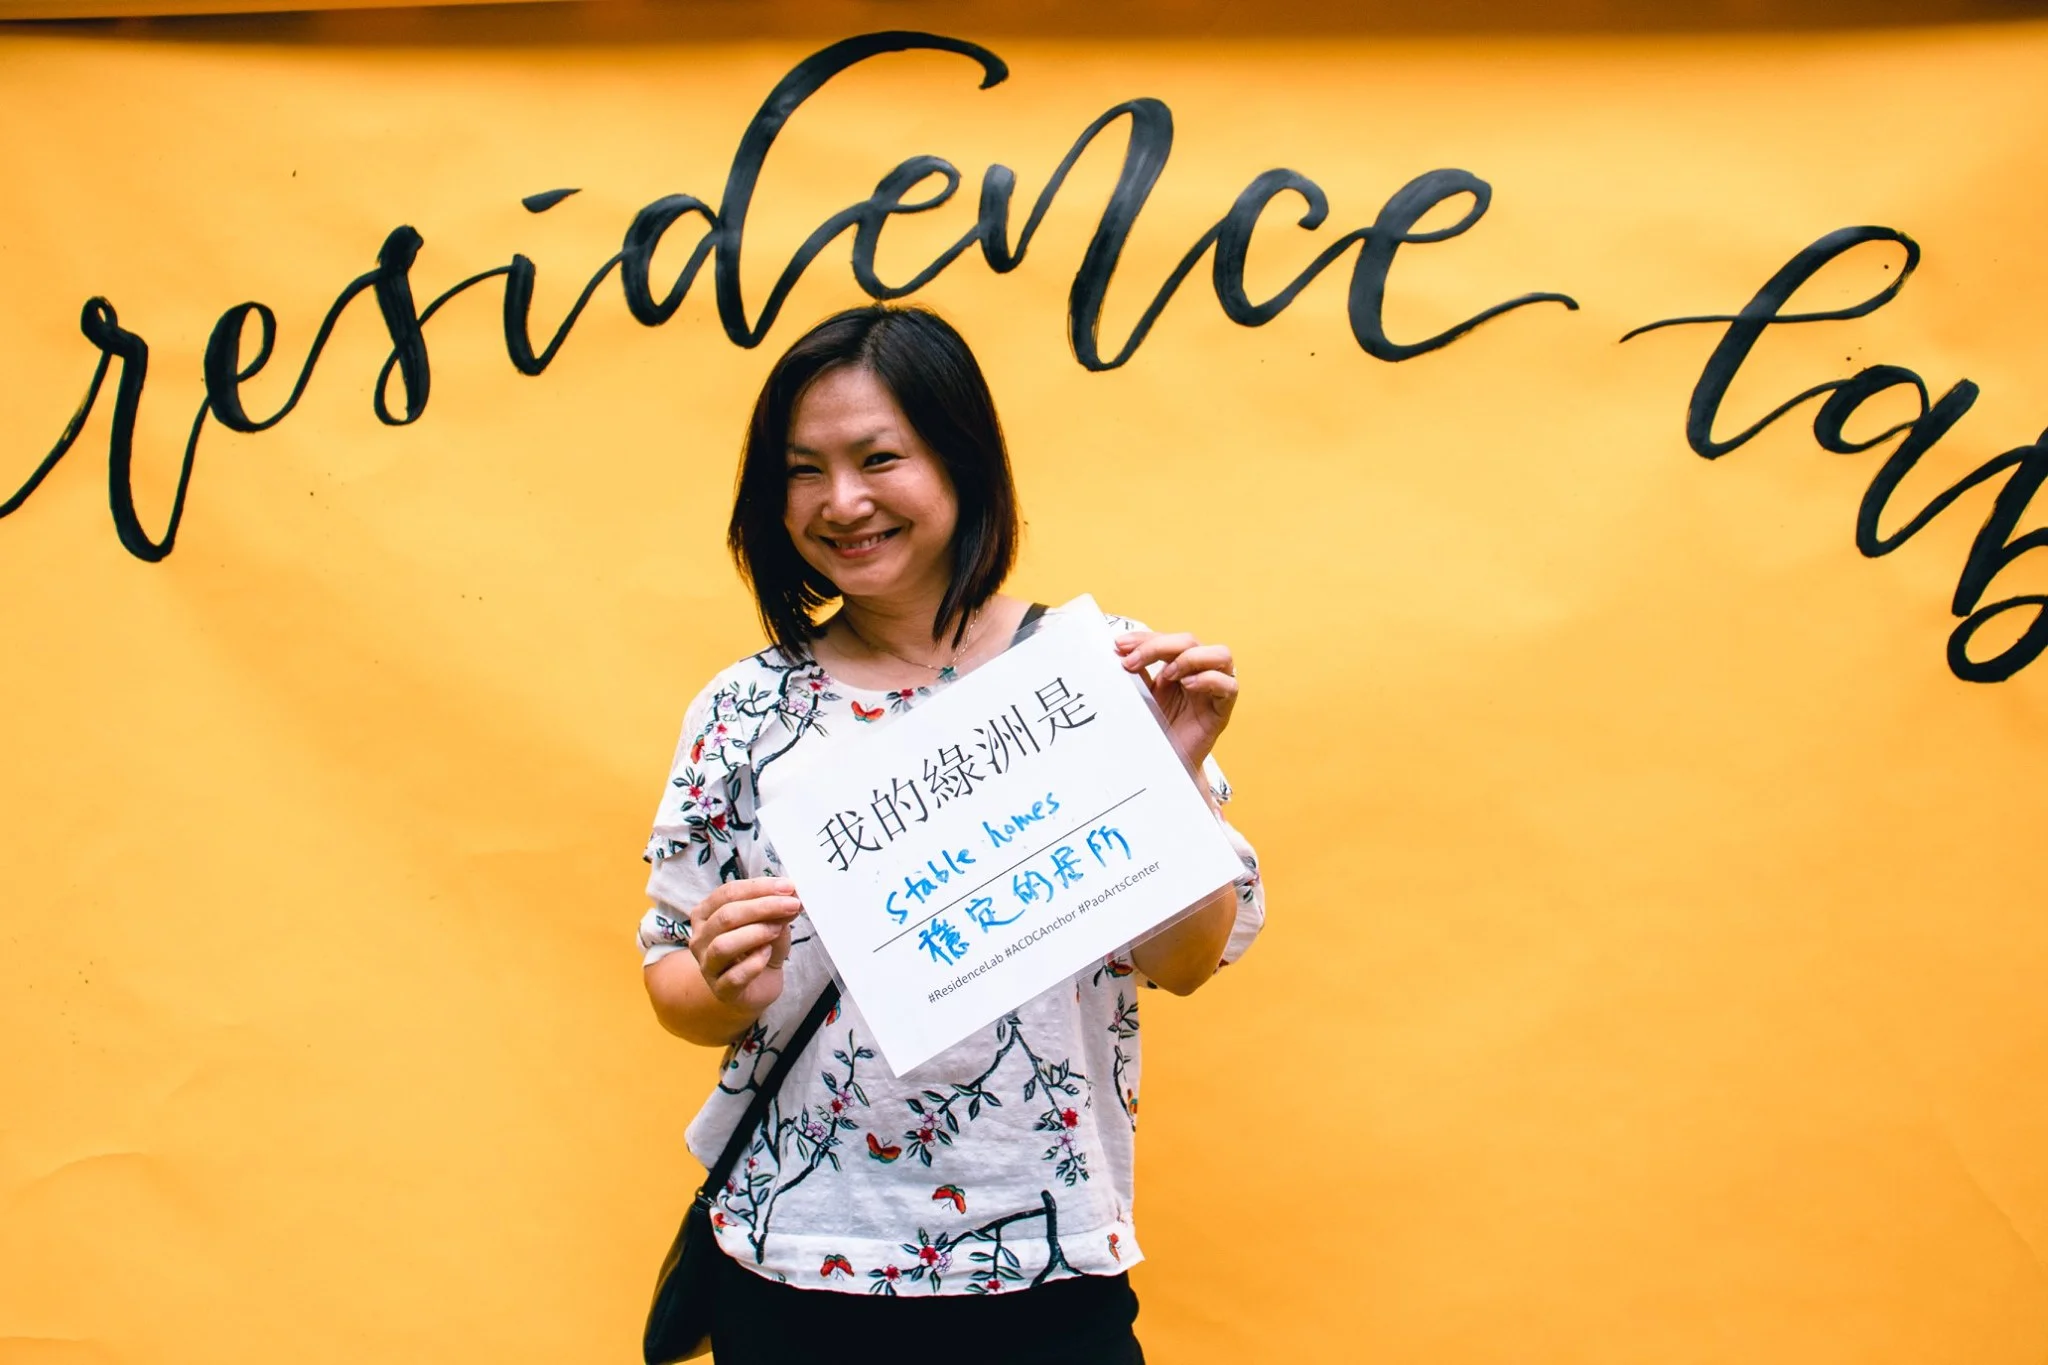 residence lab
我的綠洲是
stable homes
穩定的居所
#ResidenceLab #ACDCAnchor #PaoArtsCenter